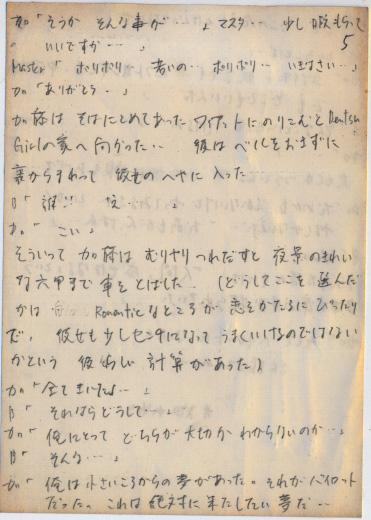 加「そうか そんな事が…」マスター… 少し暇もらって
いいですか… 」 5
Master「ポリポリ 若いの… ポリポリ… いきなさい…」
加「ありがとう。」
加藤は そばにとめてあった フィアットにのりこむと
Girlの家へ向かった… 彼はベルをおさずに
裏からまわって 彼女のへやに入った
B「誰!!
加「こい」
そういって加藤は むりやりつれだすと 夜景のきれい
な六甲まで 車をとばした。 (どうしてここを選んだ
かは Romanticなところが 恋をかたるに ぴったり
だ、 彼女も少しセンチになって うまくいけるのではない
かという 彼らしい 計算があった)
加「全てきいたよ…」
B「それならどうして…
加「俺にとって どちらが大切か わからないのか…」
B「そんな…」
加「俺は小さいころからの夢があった。それがパイロット
だった。これは絶対に 果たしたい 夢だ…